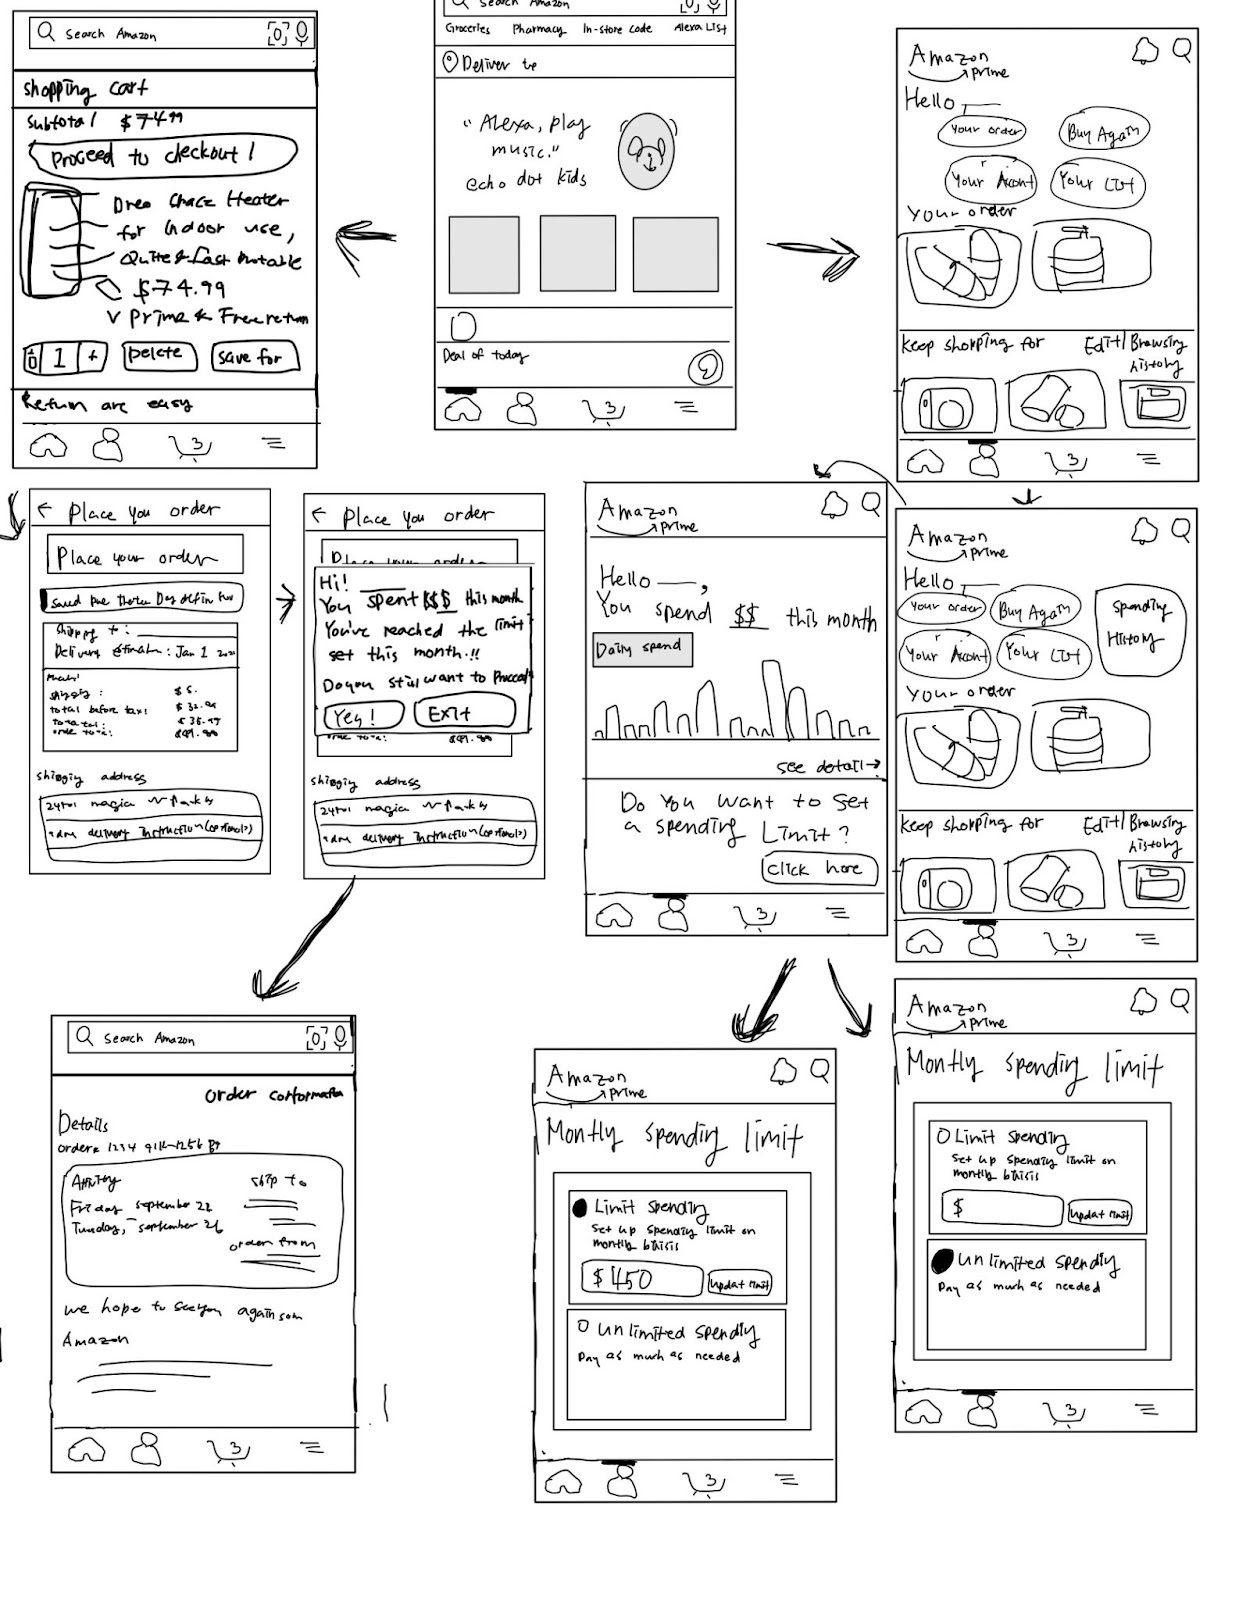 Search Amazon
shopping cart
Subtotal $74.99
Proceed to checkout 1
Dreo Space Heater
for Indoor use,
Quite & fast
$74.99
V prime & Free return
1 +
Delete
save for
Return are easy
3
Search Amazon
Groceries Pharmacy In-store code Alexa List
Deliver to
"Alexa, play
music."
echo dot kids
Deal of today
3
Amazon
prime
Hello
Your order
Buy Again
Your Account
Your List
Your order
Keep shopping for
Edit/Browsing
history
3
← Place you order
Place your order
Shipping to:
Delivery estimate: Jan 1
shipping: $ 5.
total before tax:
total:
order total:
shipping address
delivery instruction (optional)
← Place you order
Place your order
Hi!
You spent $$$ this month
You've reached the limit
set this month.!!
Do you still want to proceed
Yes!
Exit
order total:
shipping address
delivery instruction (optional)
Amazon
prime
Hello ,
You spend $$ this month
Daily spend
see detail→
Do You want to set
a spending limit?
click here
3
Amazon
prime
Hello
Your order
Buy Again
Your Account
Your List
Spending
History
Your order
Keep shopping for
Edit/Browsing
history
3
Search Amazon
Order
Details
Friday september 22
Tuesday, september 26
ship to
order from
we hope to see you again soon
Amazon
3
Amazon
prime
Montly spending limit
Limit spending
Set up spending limit on
montly
$ 450
updat limit
unlimited spending
Pay as much as needed
3
Amazon
prime
Montly spending limit
Limit spending
Set up spending limit on
montly
$
updat limit
unlimited spending
Pay as much as needed
3